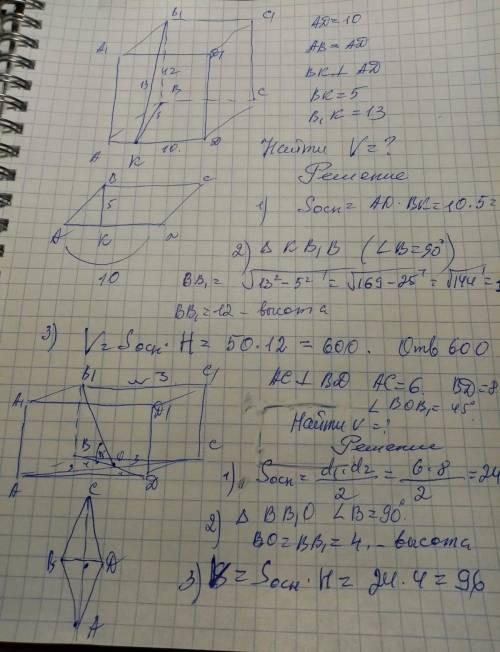 B₁ C₁
A₁ D1
13 12 B C
5
A K 10 D
AD=10
AB=AD
BK⊥AD
BK=5
B₁K=13
Найти V=?
Решение
1) Sосн=AD·BK=10·5=
B C
5
A K D
10
2) Δ KB₁B (∠B=90°)
BB₁= √13²-5² = √169-25 = √144 =1
BB₁=12 - высота
3) V=Sосн·H=50·12=600. Отв 600
B1 №3 C1
A₁ D1
B O C
A D
AC⊥BD AC=6 BD=8
∠BOB₁=45°
Найти V=?
Решение
1) Sосн= d₁·d₂/2 = 6·8/2 =24
2) Δ BB₁O ∠B=90°.
BO=BB₁=4 - высота
3) V=Sосн·H=24·4=96
C
B D
A